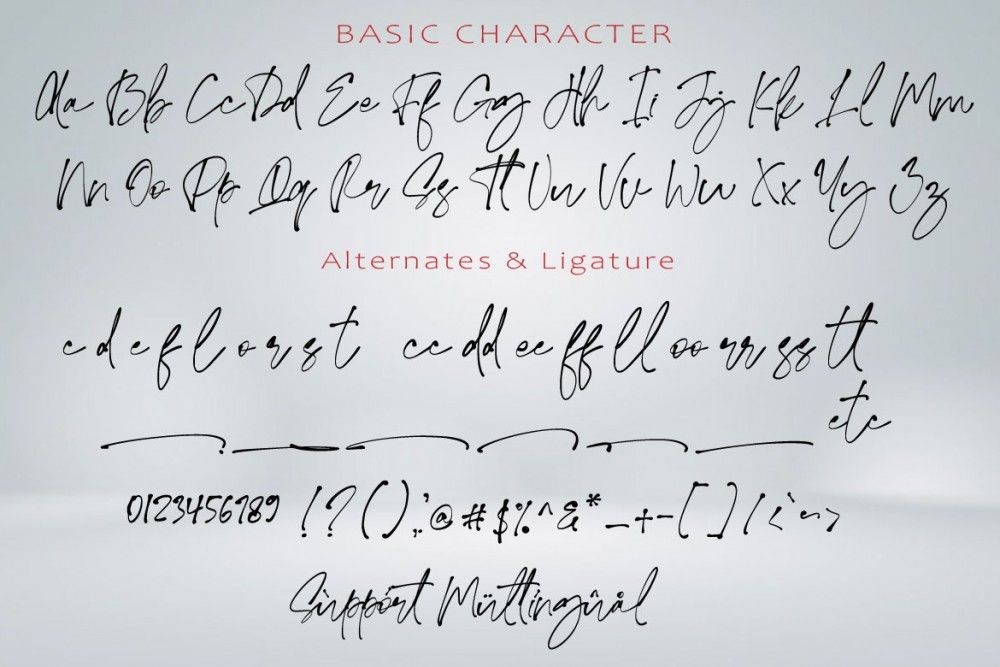 BASIC CHARACTER
Aa Bb Cc Dd Ee Ff Gg Hh Ii Jj Kk Ll Mm
Nn Oo Pp Qq Rr Ss Tt Uu Vv Ww Xx Yy Zz
Alternates & Ligature
c d e f l o r s t cc dd ee ff ll oo rr ss tt
etc
0123456789 !?(),;'@#$%^&*_+-[]/<`~>
Sùppórt Mültíngûål